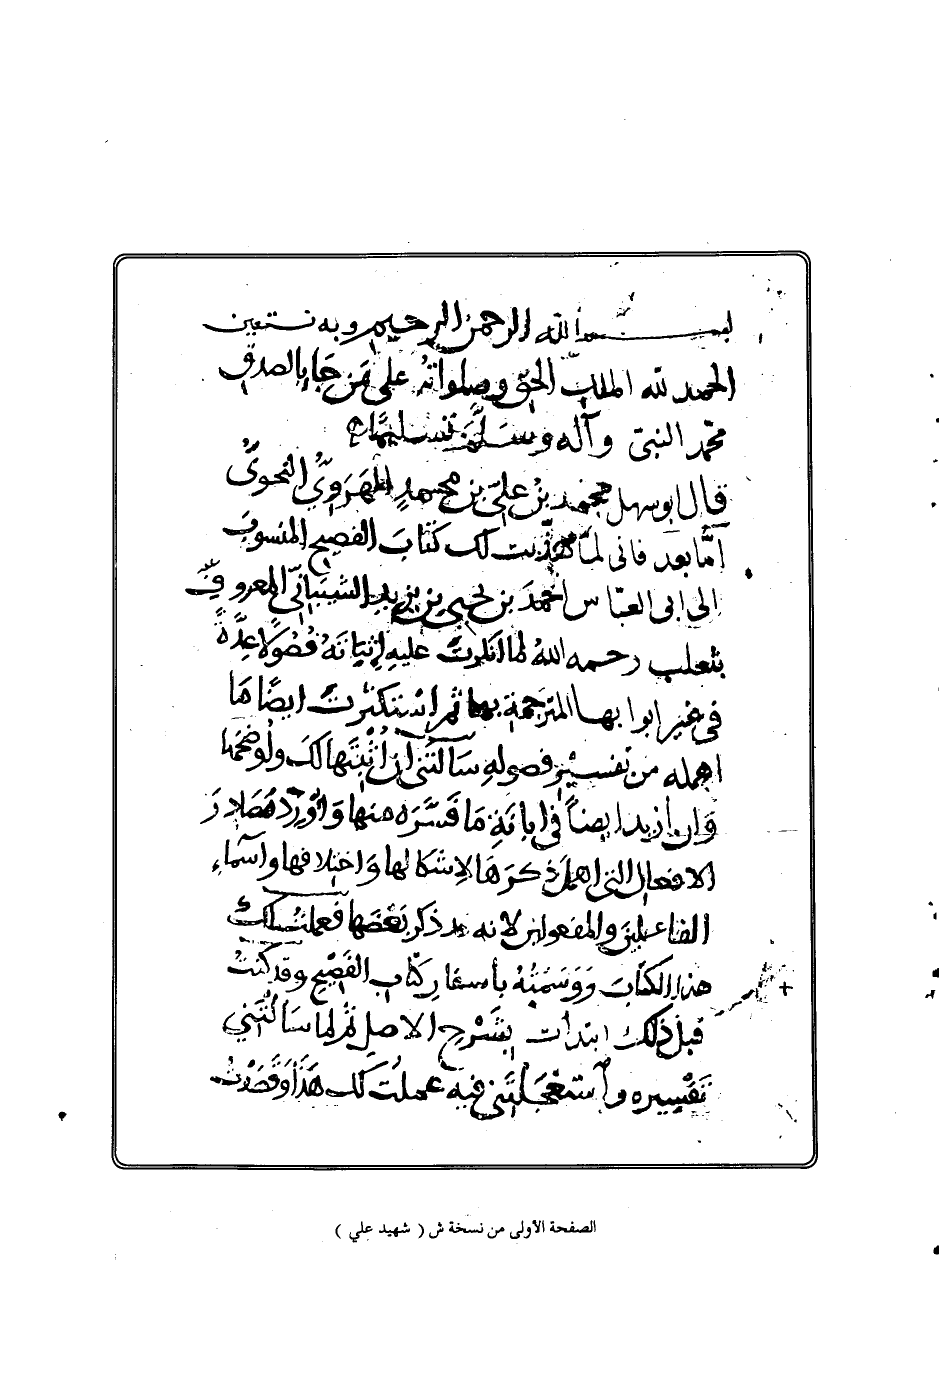 بسم الله الرحمن الرحيم وبه نستعين
الحمد لله الملك الحق وصلواته على من جا بالصدق
محمد النبي وآله وسلم تسليما
قال ابو سهل محمد بن علي بن محمد الهروي النحوي
أما بعد فاني لما هذبت لك كتاب الفصيح المنسوب
الى ابي العباس احمد بن يحيى بن يزيد الشيباني المعروف
بثعلب رحمه الله لما انكرت عليه اتيانه فصولا عدة
في غير ابوابها المترجمة بها ثم استكثرت ايضا ما
اهمله من تفسير فصوله سالتني ان اثبتها لك واوضحها
وان ازيد ايضا في ابانة ما فسره منها واورد مصادر
الافعال التي اهمل ذكرها لاشكالها واختلافها واسماء
الفاعلين والمفعولين لانه ذكر بعضها فعملت لك
هذا الكتاب ووسمته بأسفار كتاب الفصيح وقد كنت
قبل ذلك ابتدات بشرح الاصل ثم لما سالتني
تفسيره واستعجلتني فيه عملت لك هذا وقصدت
الصفحة الأولى من نسخة ش ( شهيد علي )